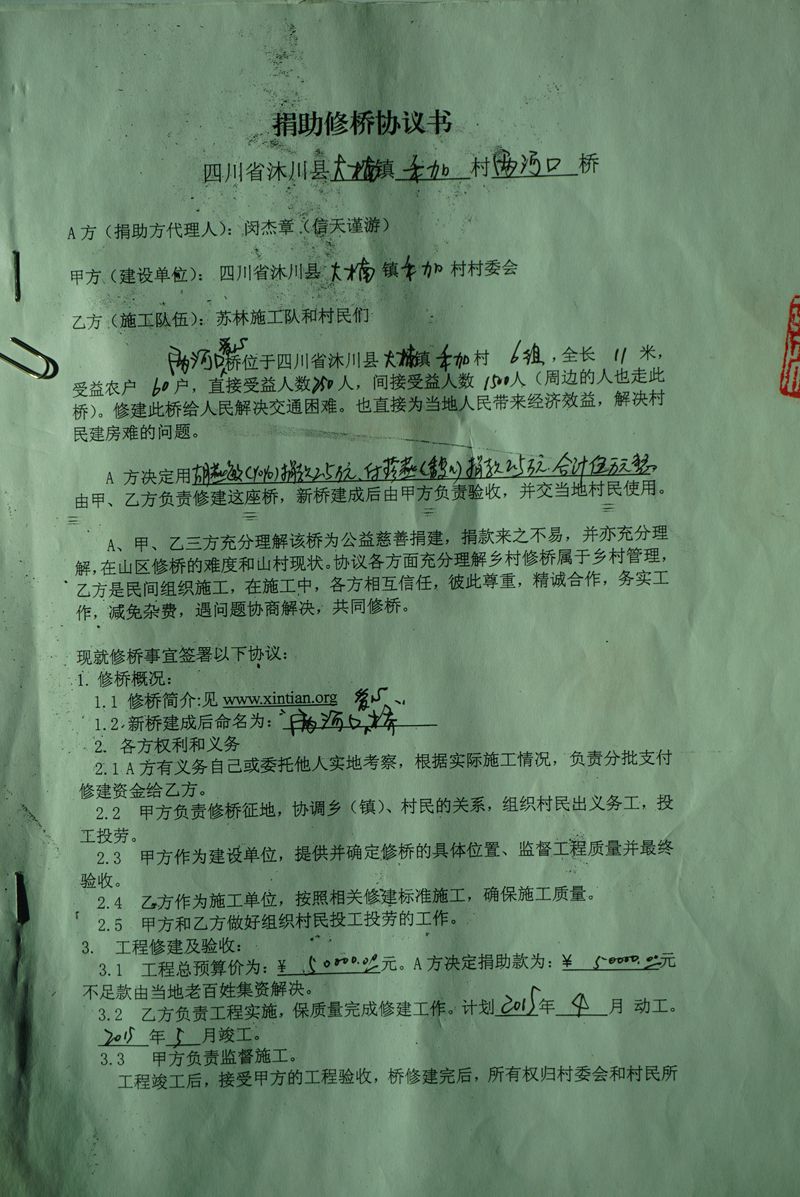 捐助修桥协议书
四川省沐川县大楠镇 年加 村 两河口 桥
A方（捐助方代理人）：闵杰章（信天谨游）
甲方（建设单位）：四川省沐川县大楠镇年加村村委会
乙方（施工队伍）：苏林施工队和村民们
两河口爱心桥位于四川省沐川县大楠镇年加村 6组，全长 11 米，
受益农户 60户，直接受益人数250人，间接受益人数1500人（周边的人也走此
桥）。修建此桥给人民解决交通困难。也直接为当地人民带来经济效益，解决村
民建房难的问题。
A 方决定用 捐款2.5万元、捐款2.5万元 合计伍万元整
由甲、乙方负责修建这座桥，新桥建成后由甲方负责验收，并交当地村民使用。
A、甲、乙三方充分理解该桥为公益慈善捐建，捐款来之不易，并亦充分理
解，在山区修桥的难度和山村现状。协议各方面充分理解乡村修桥属于乡村管理，
乙方是民间组织施工，在施工中，各方相互信任，彼此尊重，精诚合作，务实工
作，减免杂费，遇问题协商解决，共同修桥。
现就修桥事宜签署以下协议：
1. 修桥概况：
1.1 修桥简介:见 www.xintian.org 爱心
1.2 新桥建成后命名为：两河口桥
2. 各方权利和义务
2.1 A方有义务自己或委托他人实地考察，根据实际施工情况，负责分批支付
修建资金给乙方。
2.2 甲方负责修桥征地，协调乡（镇）、村民的关系，组织村民出义务工，投
工投劳。
2.3 甲方作为建设单位，提供并确定修桥的具体位置、监督工程质量并最终
验收。
2.4 乙方作为施工单位，按照相关修建标准施工，确保施工质量。
2.5 甲方和乙方做好组织村民投工投劳的工作。
3. 工程修建及验收：
3.1 工程总预算价为：¥ 50000.00元。A方决定捐助款为：¥ 50000.00元
不足款由当地老百姓集资解决。
3.2 乙方负责工程实施，保质量完成修建工作。计划2015年 4 月 动工。
2015 年 5 月竣工。
3.3 甲方负责监督施工。
工程竣工后，接受甲方的工程验收，桥修建完后，所有权归村委会和村民所